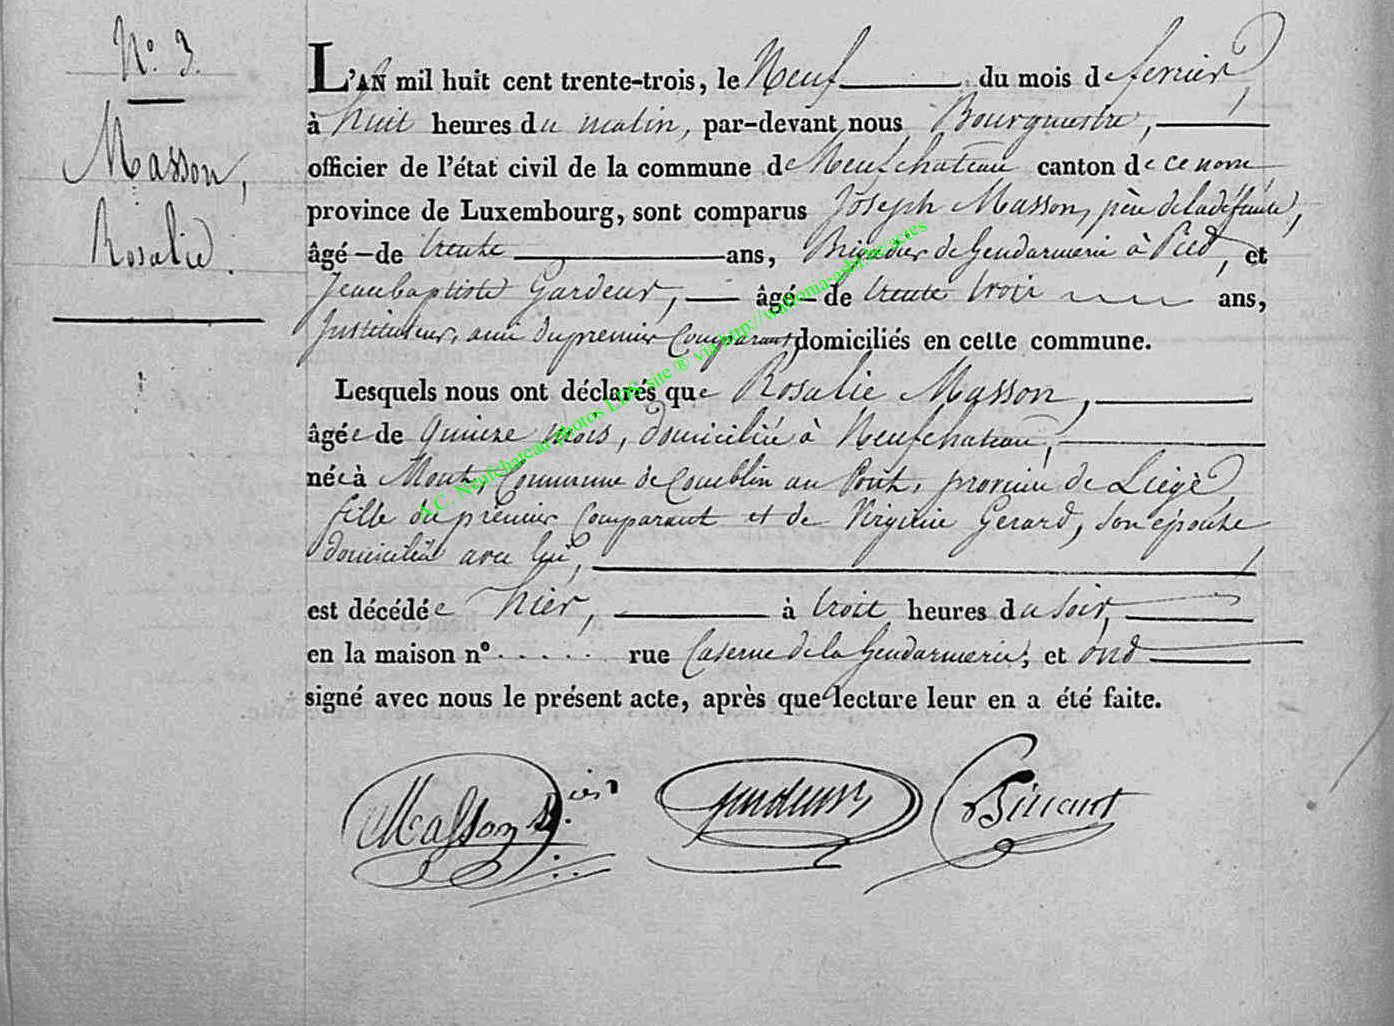 N.° 3.
Masson,
Rosalie.
L'AN mil huit cent trente-trois, le Neuf du mois de fevrier,
à huit heures du matin, par-devant nous Bourgmestre,
officier de l'état civil de la commune de Neufchateau canton de ce nom
province de Luxembourg, sont comparus Joseph Masson, père de la défunte,
âgé de trente ans, Brigadier de Gendarmerie à Pied, et
Jeanbaptiste Gardeur, âgé de trente trois ans,
Instituteur, ami du premier Comparant, domiciliés en cette commune.
Lesquels nous ont déclarés que Rosalie Masson,
âgée de Quinze mois, domiciliée à Neufchateau,
née à Mont, Commune de Comblin au Pont, province de Liège,
fille du premier Comparant et de Virginie Gerard, son épouse
domiciliée avec lui,
est décédée hier, à trois heures du soir,
en la maison n° . . . . . rue Caserne de la Gendarmerie; et ond
signé avec nous le présent acte, après que lecture leur en a été faite.
Masson B.ier
A.C. Neufchateau photos LDS site ® via http://wallonia-asbl.be/actes